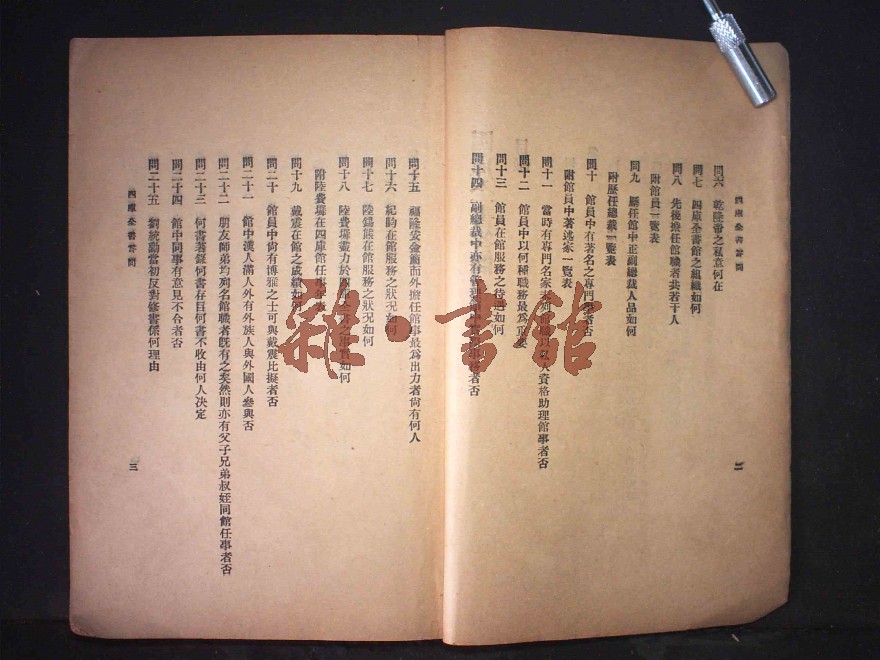 四庫全書答問
問六　乾隆帝之私意何在
問七　四庫全書館之組織如何
問八　先後擔任館職者共若干人
附館員一覽表
問九　歷任館中正副總裁人品如何
附歷任總裁一覽表
問十　館員中有著名之專門學者否
附館員中著述家一覽表
問十一　當時有專門名家未列館職以私人資格助理館事者否
問十二　館員中以何種職務最爲重要
問十三　館員在館服務之待遇如何
問十四　副總裁中亦有兼
者否
二
問十五　福隆安金簡而外擔任館事最爲出力者尙有何人
問十六　紀昀在館服務之狀況如何
問十七　陸錫熊在館服務之狀況如何
問十八　陸費墀盡力於四庫全書之事實如何
附陸費墀在四庫館任事年表
問十九　戴震在館之成績如何
問二十　館員中尙有博雅之士可與戴震比擬者否
問二十一　館中漢人滿人外有外族人與外國人參與否
問二十二　朋友師弟均列名館職者旣有之矣然則亦有父子兄弟叔姪同館任事者否
問二十三　何書著錄何書存目何書不收由何人決定
問二十四　館中同事有意見不合者否
問二十五　劉統勳當初反對修書係何理由
四庫全書答問
三
雜·書館